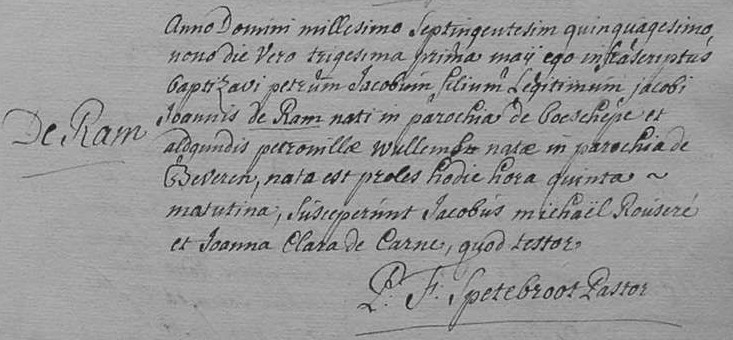 Anno Domini millesimo Septingentesim quinquagesimo
nono die Vero trigesima prima maÿ ego infrascriptus
baptizavi petrum Jacobum filium Legitimum jacobi
De Ram
Joannis de Ram nati in parochia de boeschepe et
aldgundis petronillæ Wullems natæ in parochia de
Beveren, nata est proles hodie hora quinta ~
matutina, Susceperunt Jacobus michaël Rouseré
et Joanna Clara de Carne, quod testor
P: F: Spetebroot Pastor